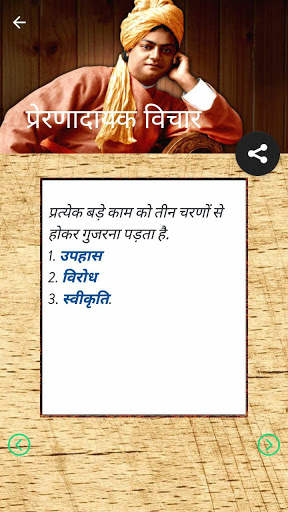 प्रेरणादायक विचार
प्रत्येक बड़े काम को तीन चरणों से
होकर गुजरना पड़ता है.
1. उपहास
2. विरोध
3. स्वीकृति.